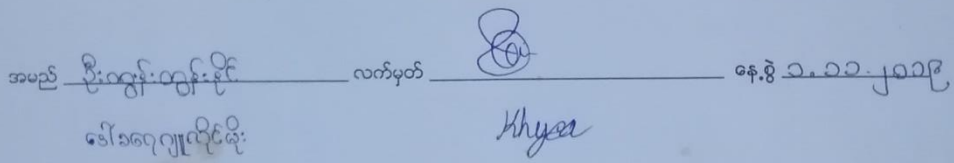 အမည် ဦးထွန်းထွန်းနိုင် လက်မှတ် နေ့စွဲ ၁.၁၁.၂၀၁၉
ဒေါ်ခရေဂျူလှိုင်ဖိုး Khyaa